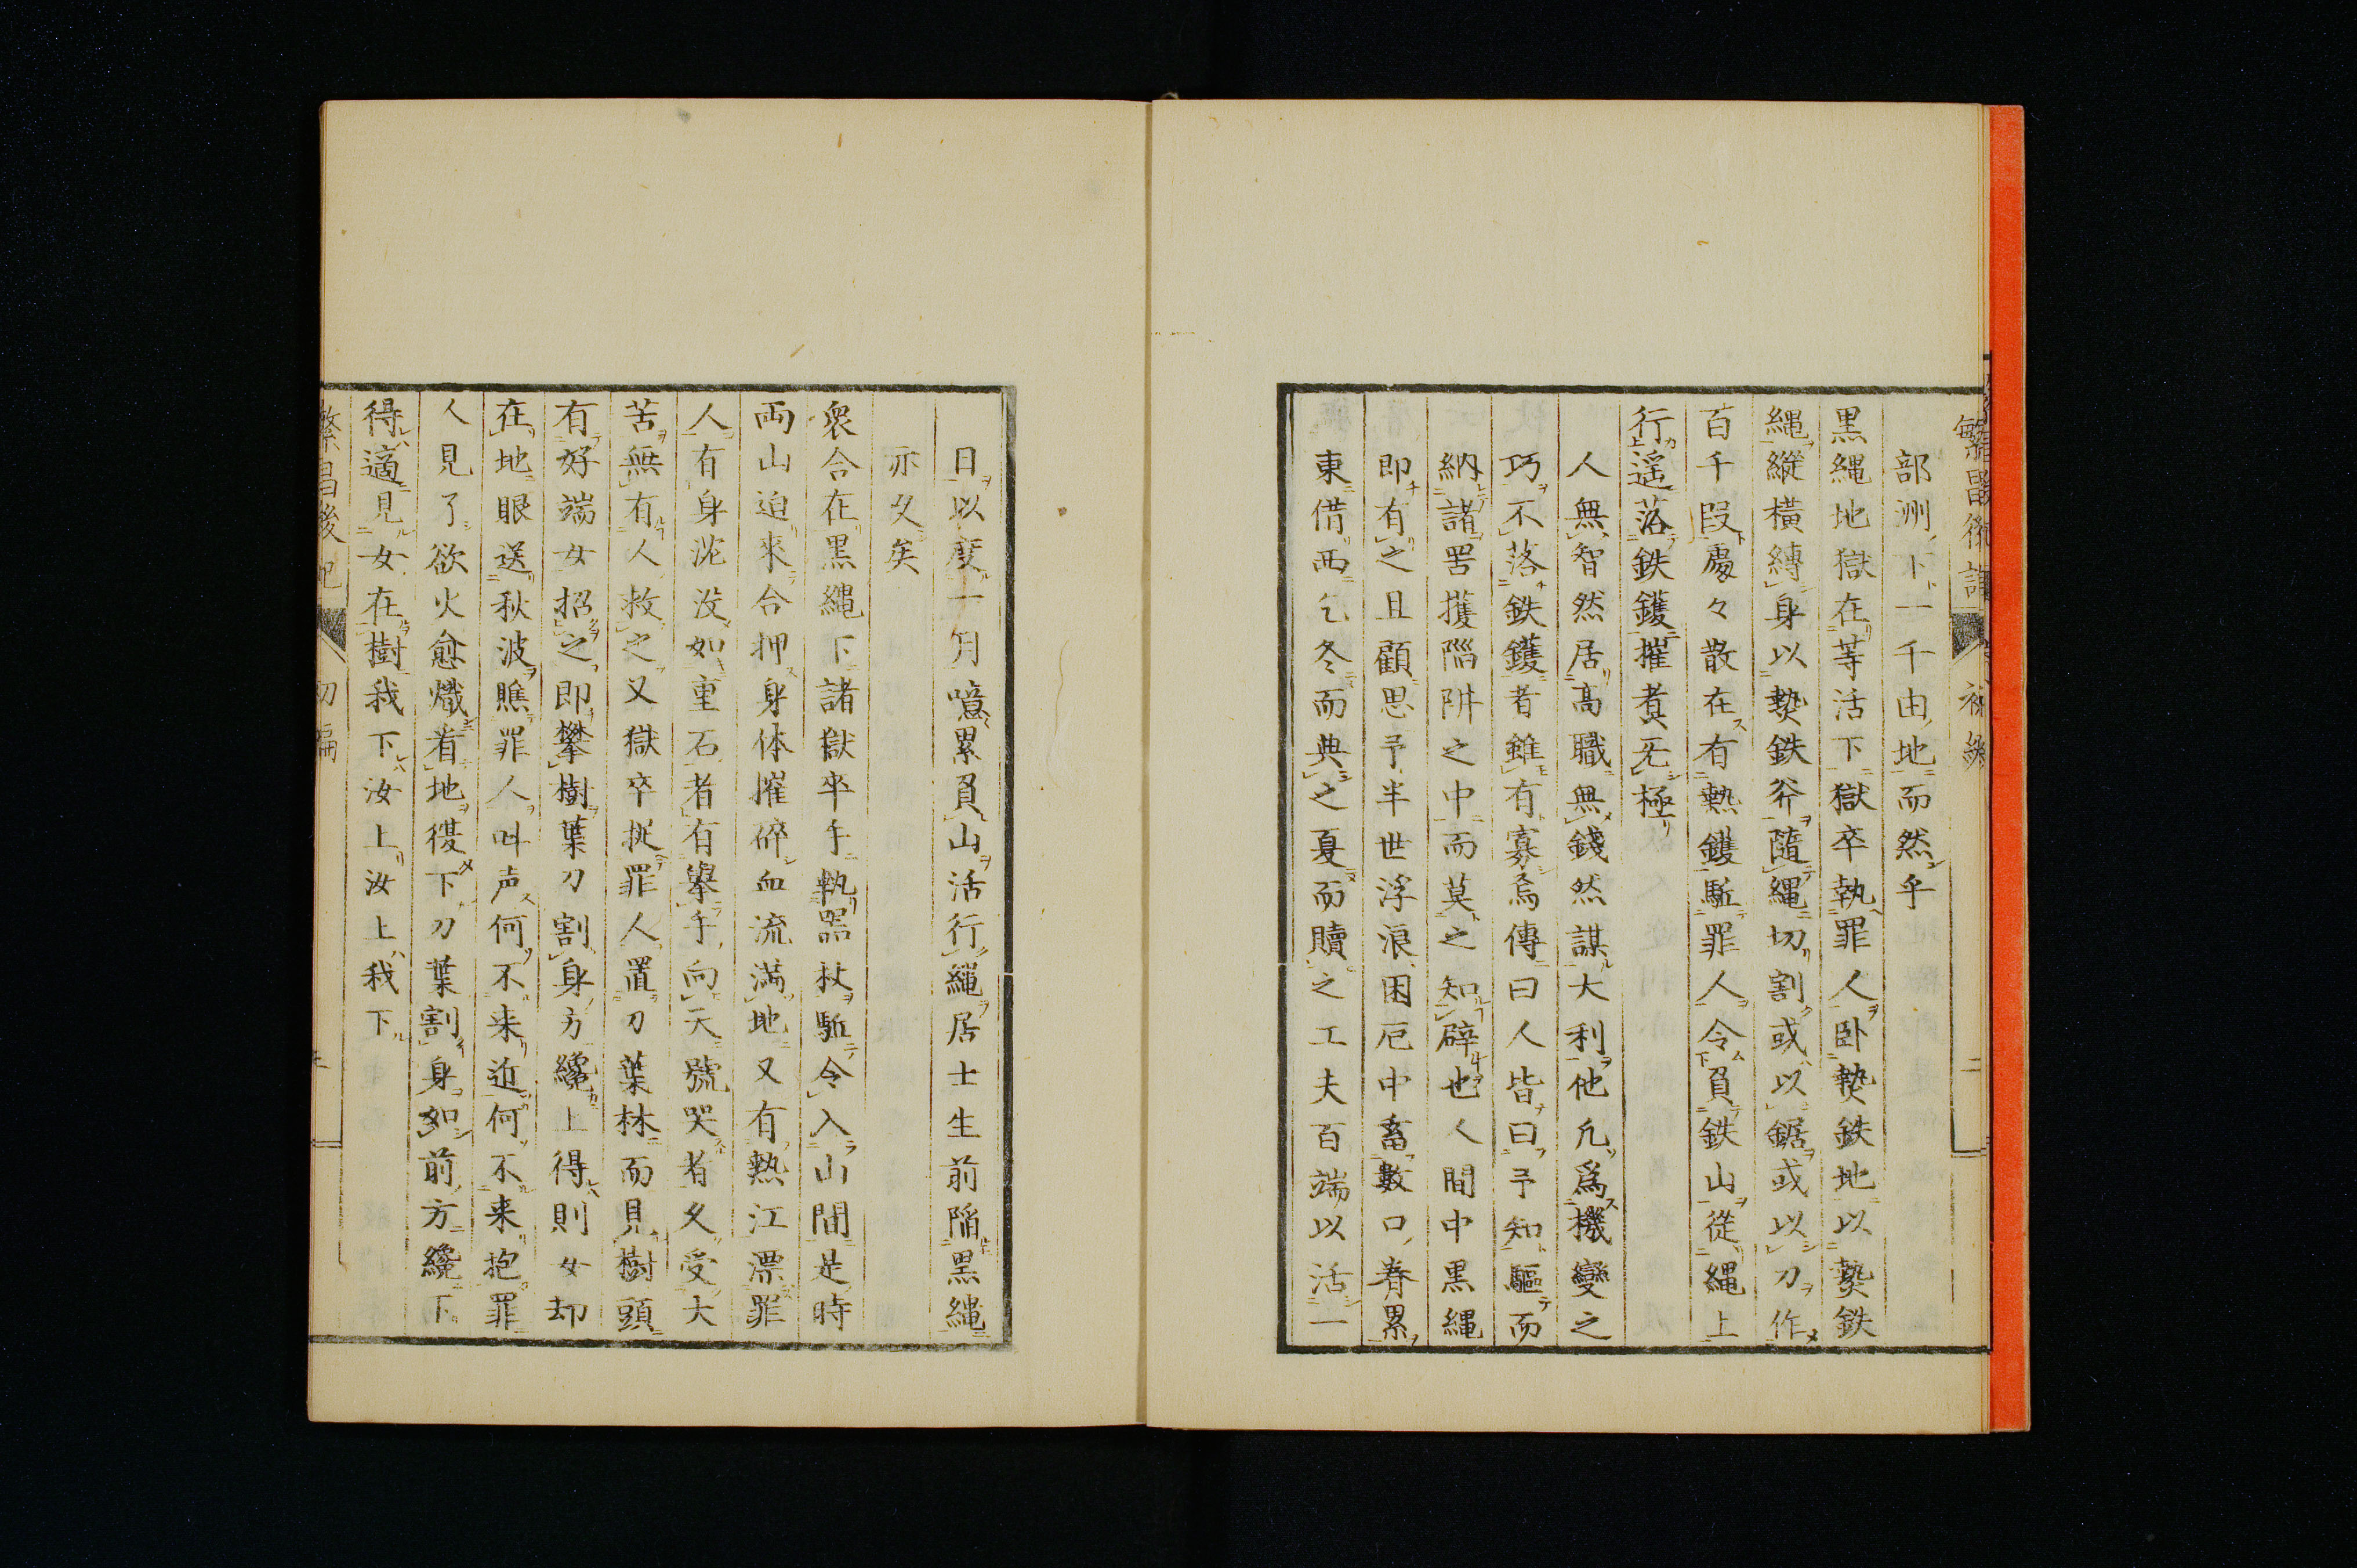 部洲、下一千由地而然乎
黒縄地獄在等活下獄卒執罪人臥熱鉄地以熱鉄
縄縦横縛身以熱鉄斧隨縄切割或以鋸或以刀作
百千段處々散在有熱鑊駈罪人令負鉄山従縄上
行遥落鉄鑊摧煮无極
人無智然居高職無錢然謀大利他凢為機變之
巧不落鉄鑊者雖有寡焉傳曰人皆曰予知驅而
納諸罟擭陥阱之中而莫之知辟也人間中黒縄
即有之且顧思予半世浮浪困厄中畜數口眷累
東借西乞冬而典之夏而贖之工夫百端以活一
日以度一月噫累負山活行縄居士生前陥黒縄
亦久矣
衆合在黒縄下諸獄卒手執器杖駈令入山間是時
両山迫來合押身体摧砕血流満地又有熱江漂罪
人有身沈没如重石者有擧手向天號哭者久受大
苦無有人救之又獄卒捉罪人置刀葉林而見樹頭
有好端女招之即攀樹葉刀割身方纔上得則女却
在地眼送秋波瞧罪人叫声何不来近何不来抱罪
人見了欲火愈熾着地復下刀葉割身如前方纔下
得適見女在樹我下汝上汝上我下
繁昌後記 初編